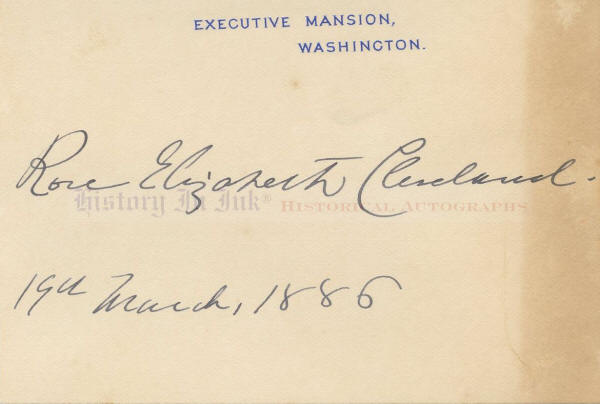 EXECUTIVE MANSION,
WASHINGTON.
Rose Elizabeth Cleveland.
History In Ink® HISTORICAL AUTOGRAPHS
19th March, 1886